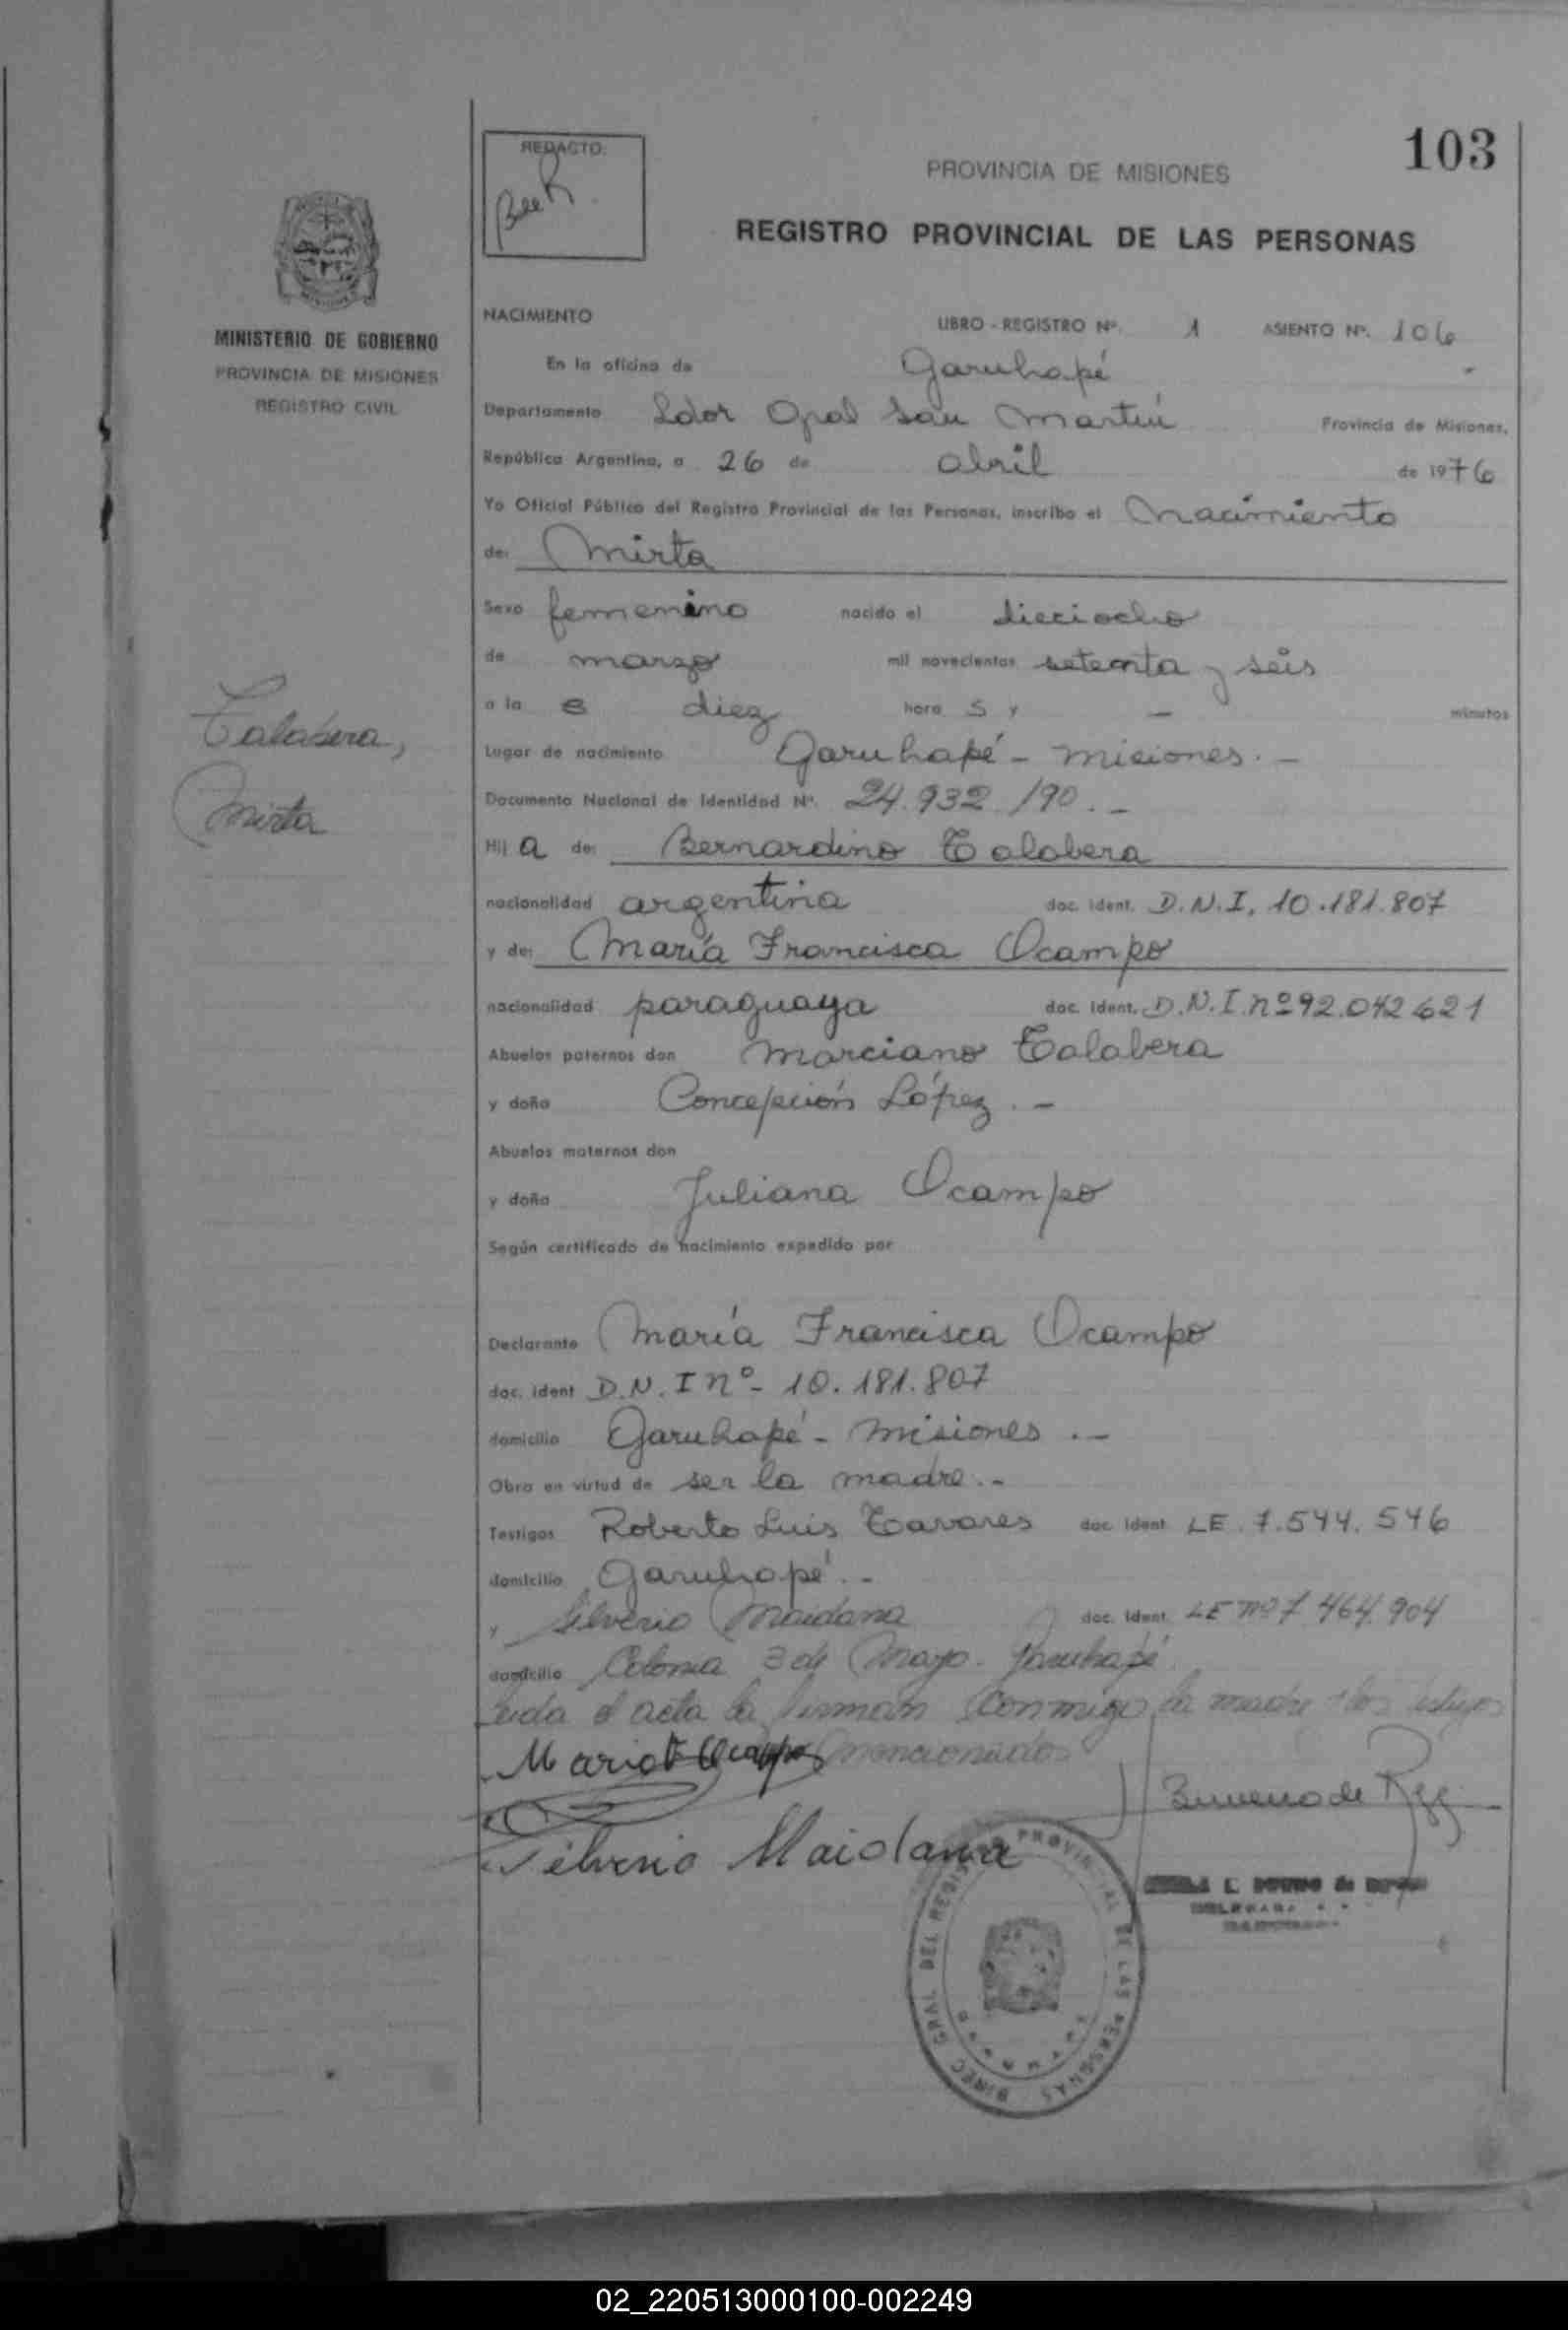 103
REDACTO:
PROVINCIA DE MISIONES
REGISTRO PROVINCIAL DE LAS PERSONAS
MINISTERIO DE GOBIERNO
PROVINCIA DE MISIONES
REGISTRO CIVIL
NACIMIENTO LIBRO - REGISTRO Nº. 1 ASIENTO Nº. 106
En la oficina de Garuhapé
Departamento Ldor Gral San Martín Provincia de Misiones,
República Argentina, a 26 de abril de 1976
Yo Oficial Público del Registro Provincial de las Personas, inscribo el Nacimiento
de: Mirta
Sexo femenino nacido el dieciocho
de marzo mil novecientos setenta y seis
a la s diez hora s y — minutos
Talabera,
Mirta
Lugar de nacimiento Garuhapé - Misiones. -
Documento Nacional de Identidad Nº. 24.932.190. -
Hij a de: Bernardino Talabera
nacionalidad argentina doc. ident. D.N.I. 10.181.807
y de: María Francisca Ocampo
nacionalidad paraguaya doc. ident. D.N.I. nº 92.042621
Abuelos paternos don Marciano Talabera
y doña Concepción López. -
Abuelos maternos don
y doña Juliana Ocampo
Según certificado de nacimiento expedido por
Declarante María Francisca Ocampo
doc. ident D.N.I nº- 10.181.807
domicilio Garuhapé - Misiones. -
Obra en virtud de ser la madre. -
Testigos Roberto Luis Tavares doc. ident LE. 7.544.546
domicilio Garuhapé. -
y Silverio Maidana doc. ident. LE nº 7.464.904
domicilio Colonia 3 de Mayo. Garuhapé
Leida el acta la firman conmigo la madre y los testigos
mencionados
Maria F Ocampo
Silverio Maidana
DIREC GRAL DEL REGISTRO PROVINCIAL DE LAS PERSONAS
02_220513000100-002249